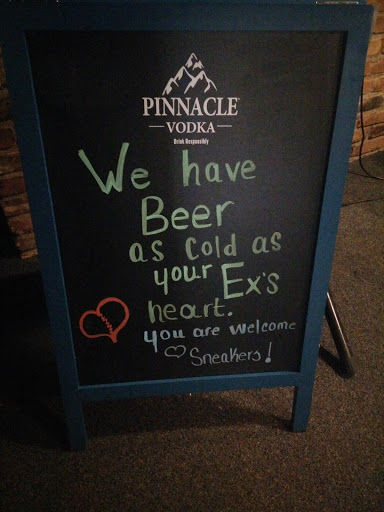 PINNACLE
VODKA
Drink Responsibly
We have
Beer
as cold as
your Ex's
heart.
you are welcome
Sneakers!